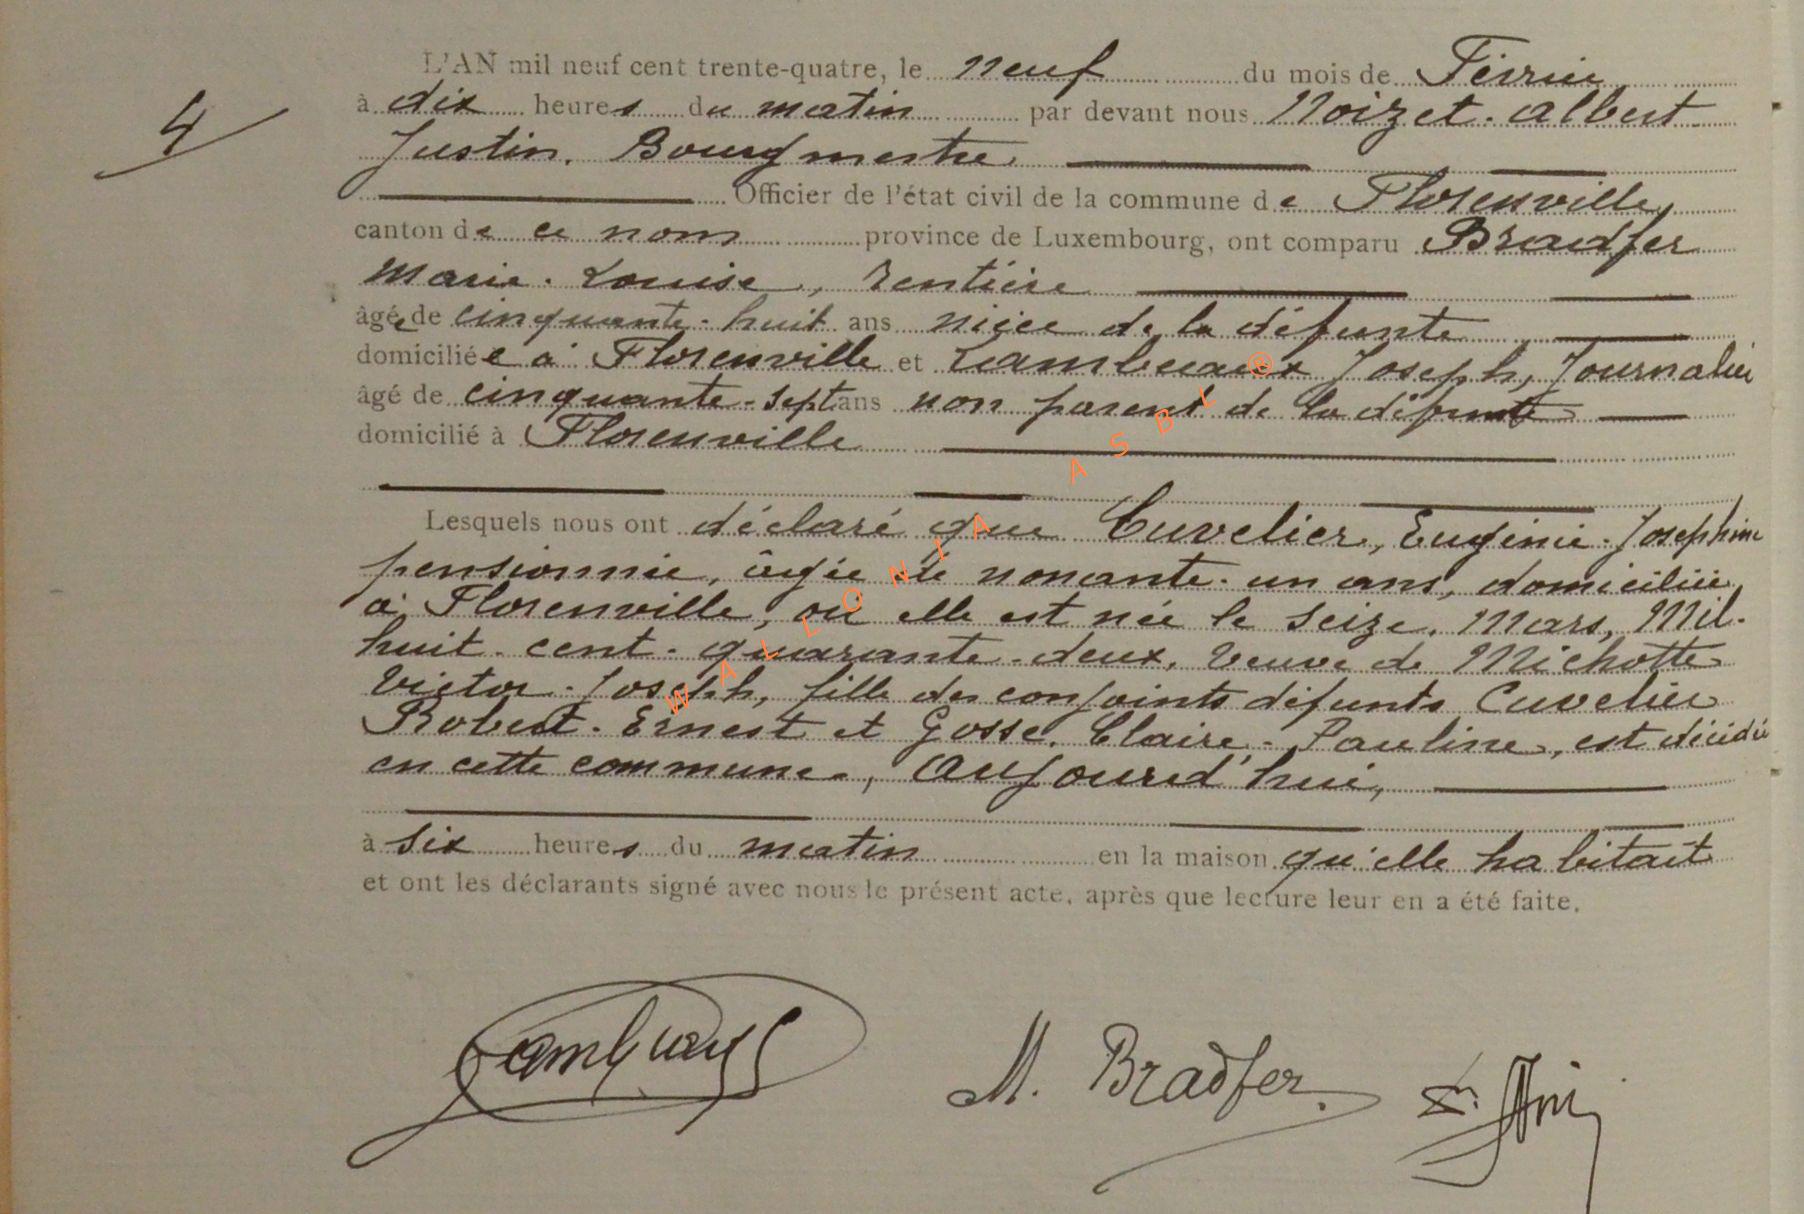 L'AN mil neuf cent trente-quatre, le neuf du mois de Février
4
à dix heures du matin par devant nous Noizet. Albert
Justin. Bourgmestre.
Officier de l'état civil de la commune de Florenville,
canton de ce nom province de Luxembourg, ont comparu Bradfer
Marie. Louise, rentière
âgée de cinquante-huit ans nièce de la défunte
domiciliée à Florenville et Lambeaux Joseph, Journalier
âgé de cinquante-sept ans non parent de la défunte
domicilié à Florenville
Lesquels nous ont déclaré que Cuvelier, Eugénie-Joséphine
pensionnée, âgée de nonante-un ans, domiciliée
à Florenville, où elle est née le seize, Mars, Mil-
huit-cent-quarante-deux, veuve de Michotte
Victor-Joseph, fille des conjoints défunts Cuvelier
Robert-Ernest et Gosse, Claire-Pauline, est décédée
en cette commune, aujourd'hui,
à six heures du matin en la maison qu'elle habitait
et ont les déclarants signé avec nous le présent acte, après que lecture leur en a été faite.
M. Bradfer.
WALLONIA ASBL ®